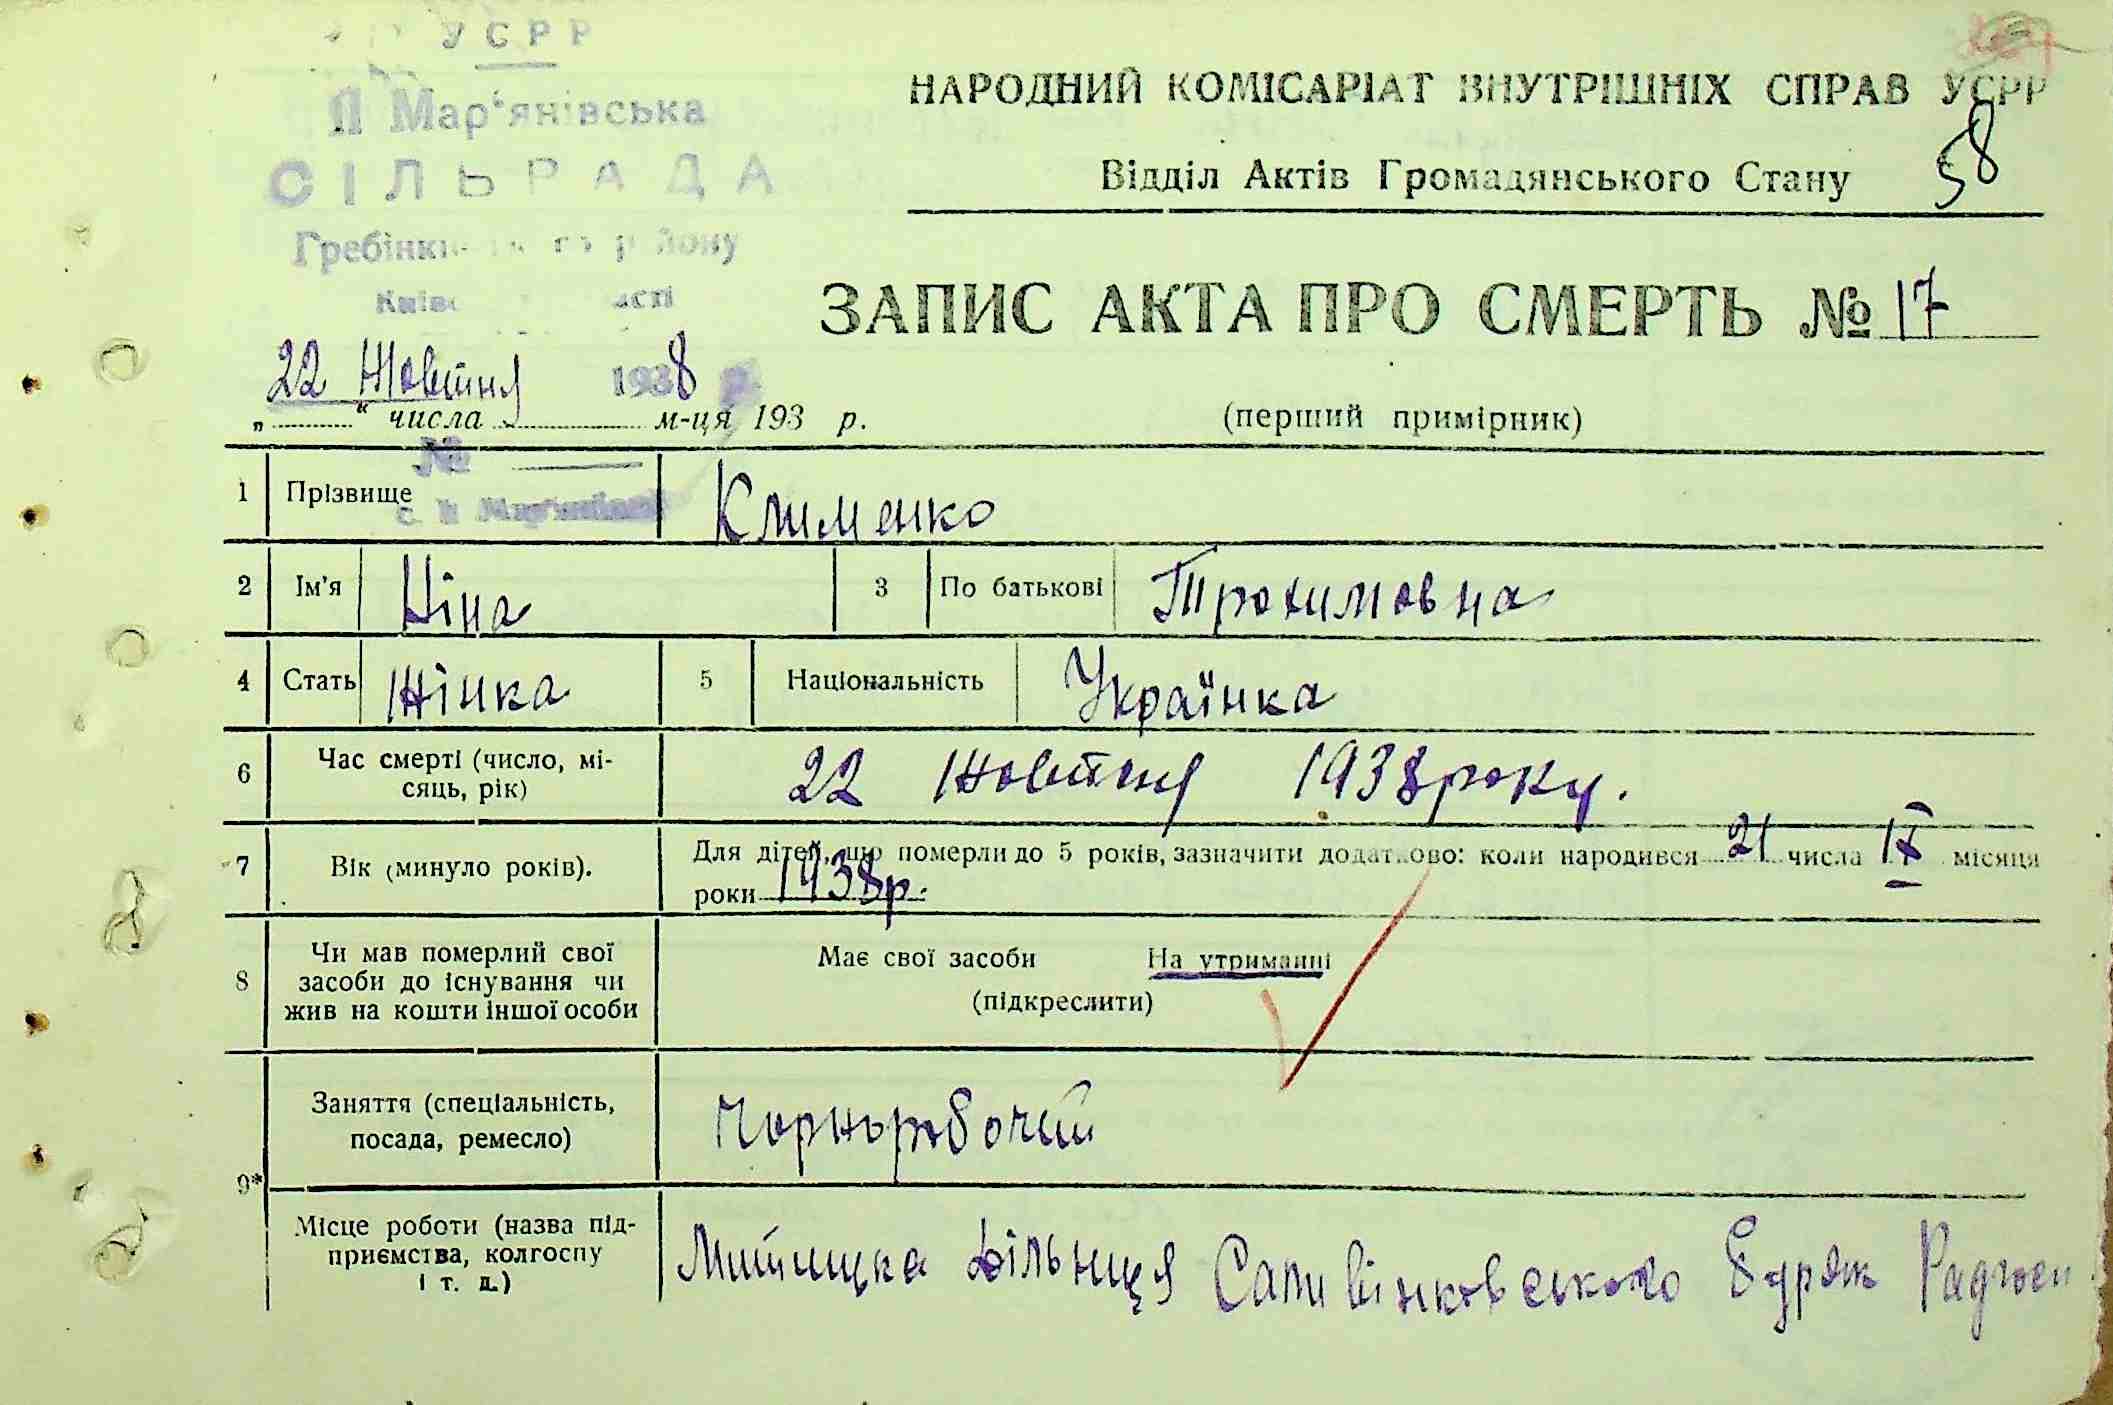 УСРР
ІІ Мар'янівська
СІЛЬРАДА
району
НАРОДНИЙ КОМІСАРІАТ ВНУТРІШНІХ СПРАВ УСРР
Відділ Актів Громадянського Стану 58
ЗАПИС АКТА ПРО СМЕРТЬ № 17
22 Жовтня 1938 р.
„ “ числа м-ця 193 р.
(перший примірник)
№
1 Прізвище Клименко
2 Ім'я Ніна 3 По батькові Трохимовна
4 Стать Жінка 5 Національність Українка
6 Час смерті (число, мі-
сяць, рік) 22 Жовтня 1938 року.
7 Вік (минуло років). Для дітей, що померли до 5 років, зазначити додатково: коли народився 21 числа ІХ місяця
роки 1938 р.
8 Чи мав померлий свої
засоби до існування чи
жив на кошти іншої особи
Має свої засоби На утриманні
(підкреслити)
9* Заняття (спеціальність,
посада, ремесло) Чорноробочий
Місце роботи (назва під-
приємства, колгоспу
і т. д.)
дільниця Саливінковського Буряк Радгосп